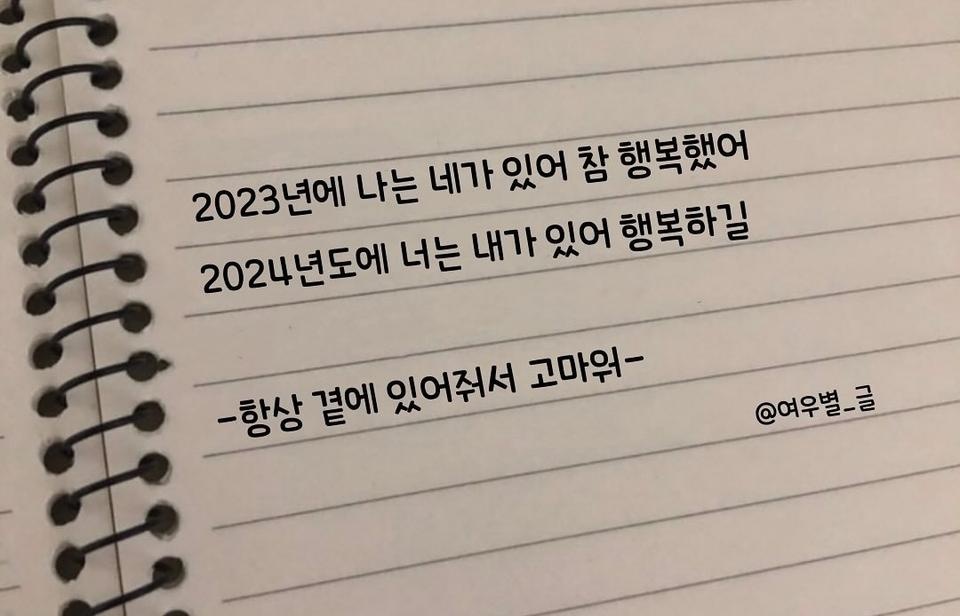 2023년에 나는 네가 있어 참 행복했어
2024년도에 너는 내가 있어 행복하길
-항상 곁에 있어줘서 고마워-
@여우별_글